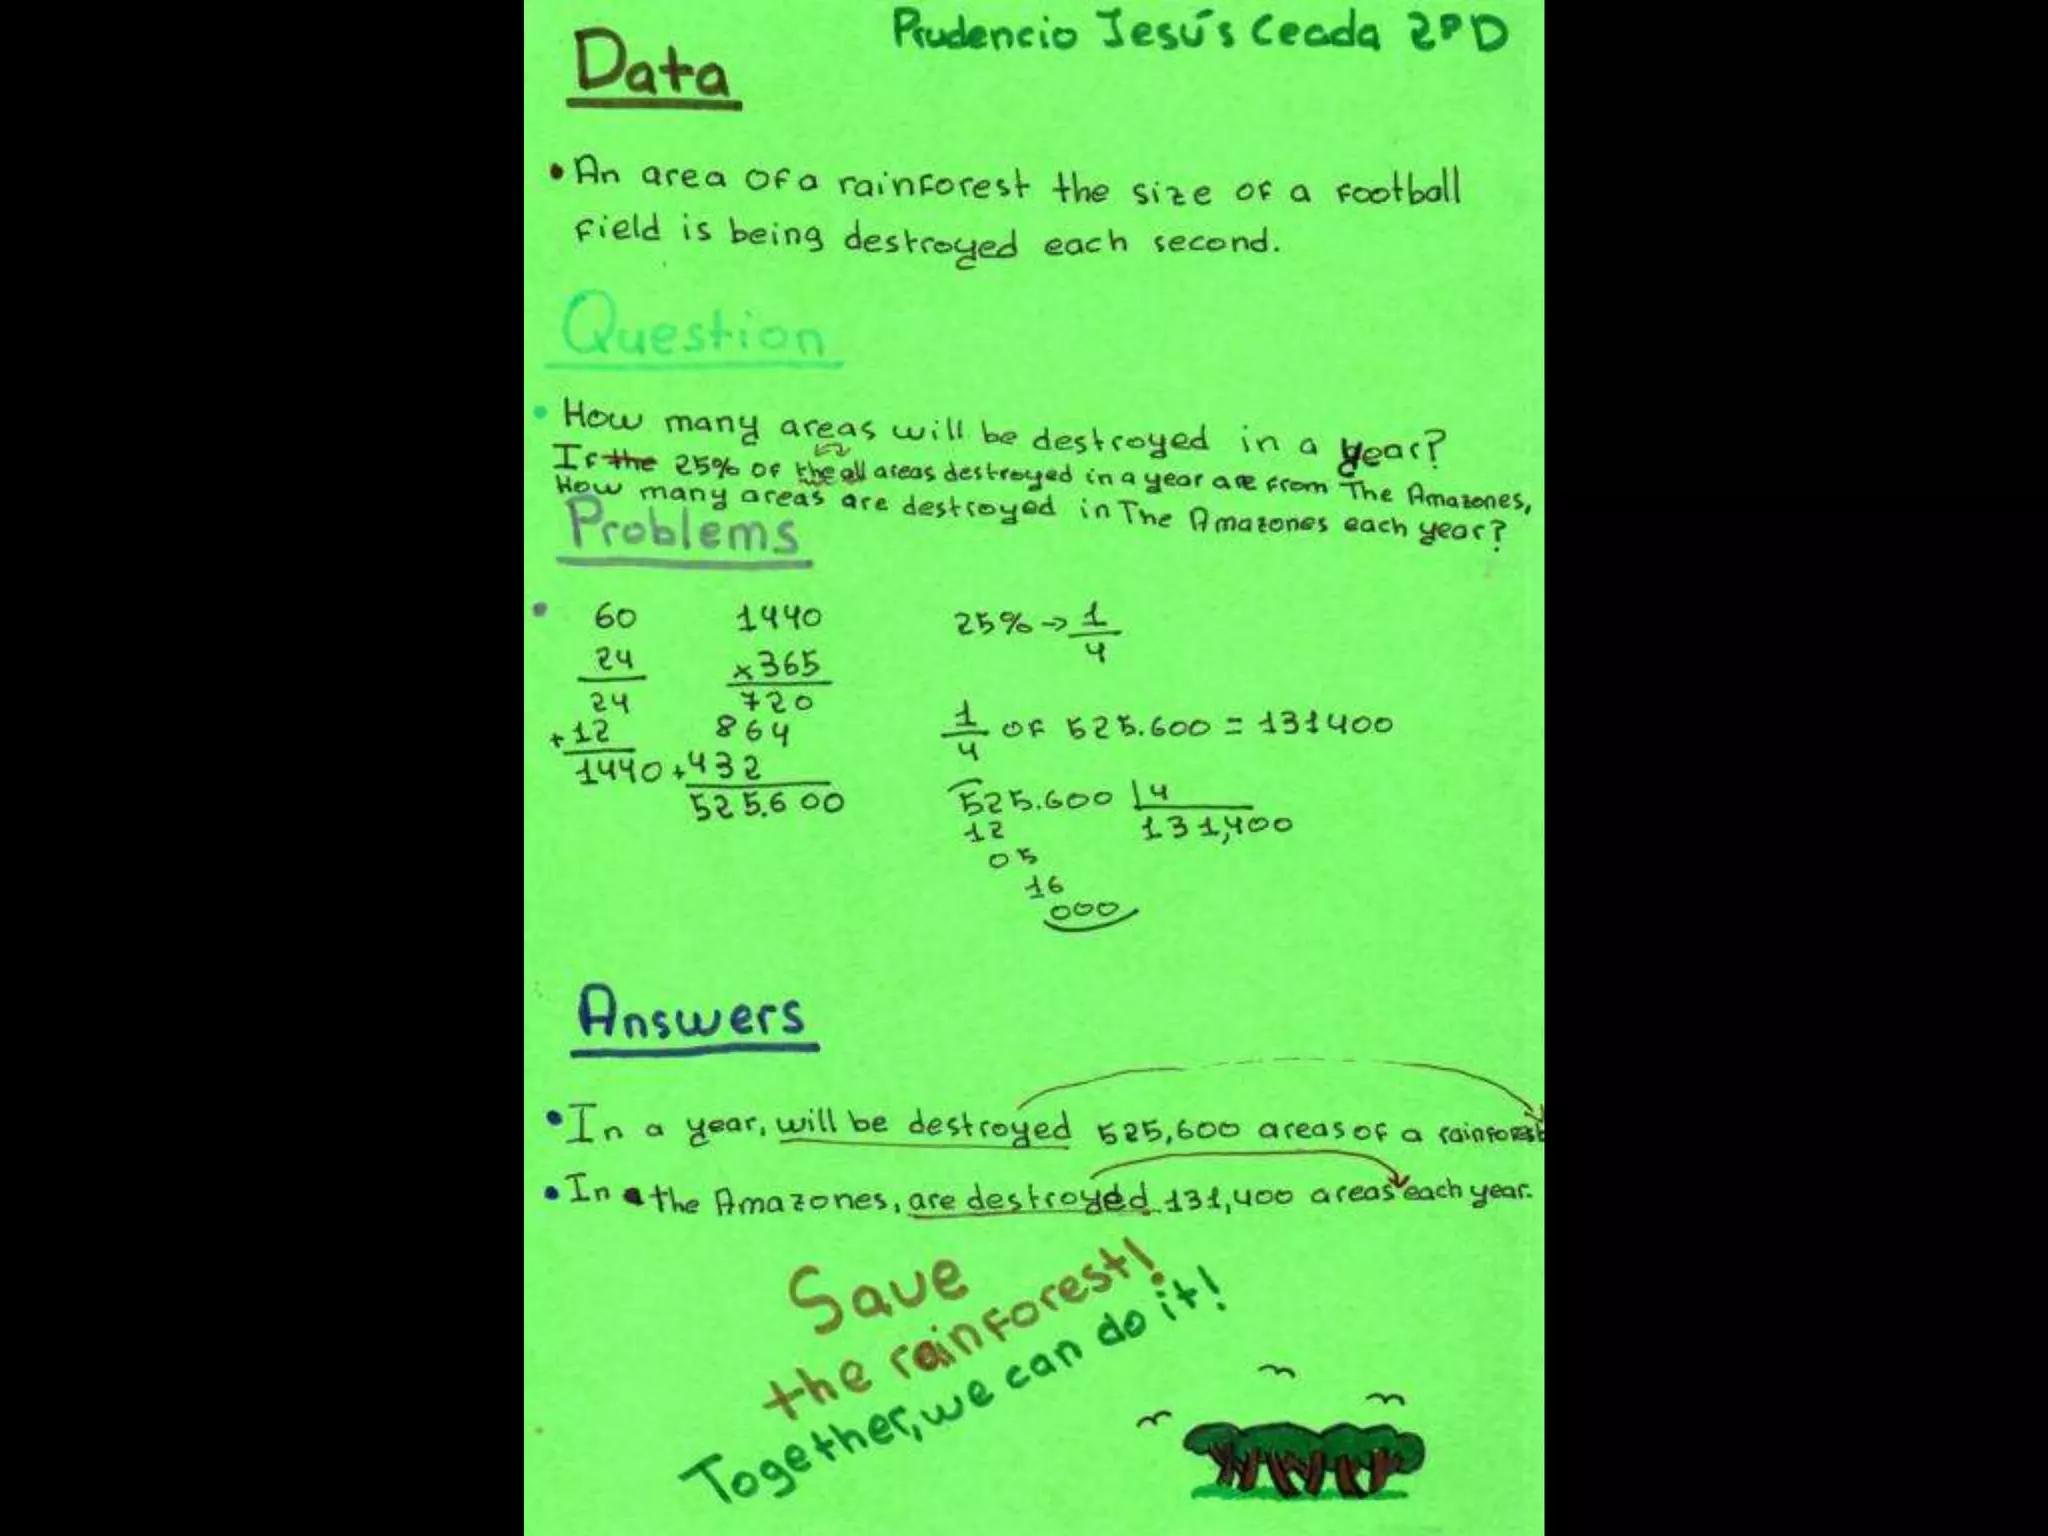 Prudencio Jesús Ceada 2ºD
Data
• An area of a rainforest the size of a football
field is being destroyed each second.
Question
• How many areas will be destroyed in a year?
If the 25% of the all areas destroyed in a year are from The Amazones,
How many areas are destroyed in The Amazones each year?
Problems
• 60
24
24
+12
1440
1440
x365
720
864
+432
525.600
25% → 1/4
1/4 of 525.600 = 131400
525.600 | 4
12 131,400
05
16
000
Answers
• In a year, will be destroyed 525,600 areas of a rainforest
• In the Amazones, are destroyed 131,400 areas each year.
Save
the rainforest!
Together, we can do it!